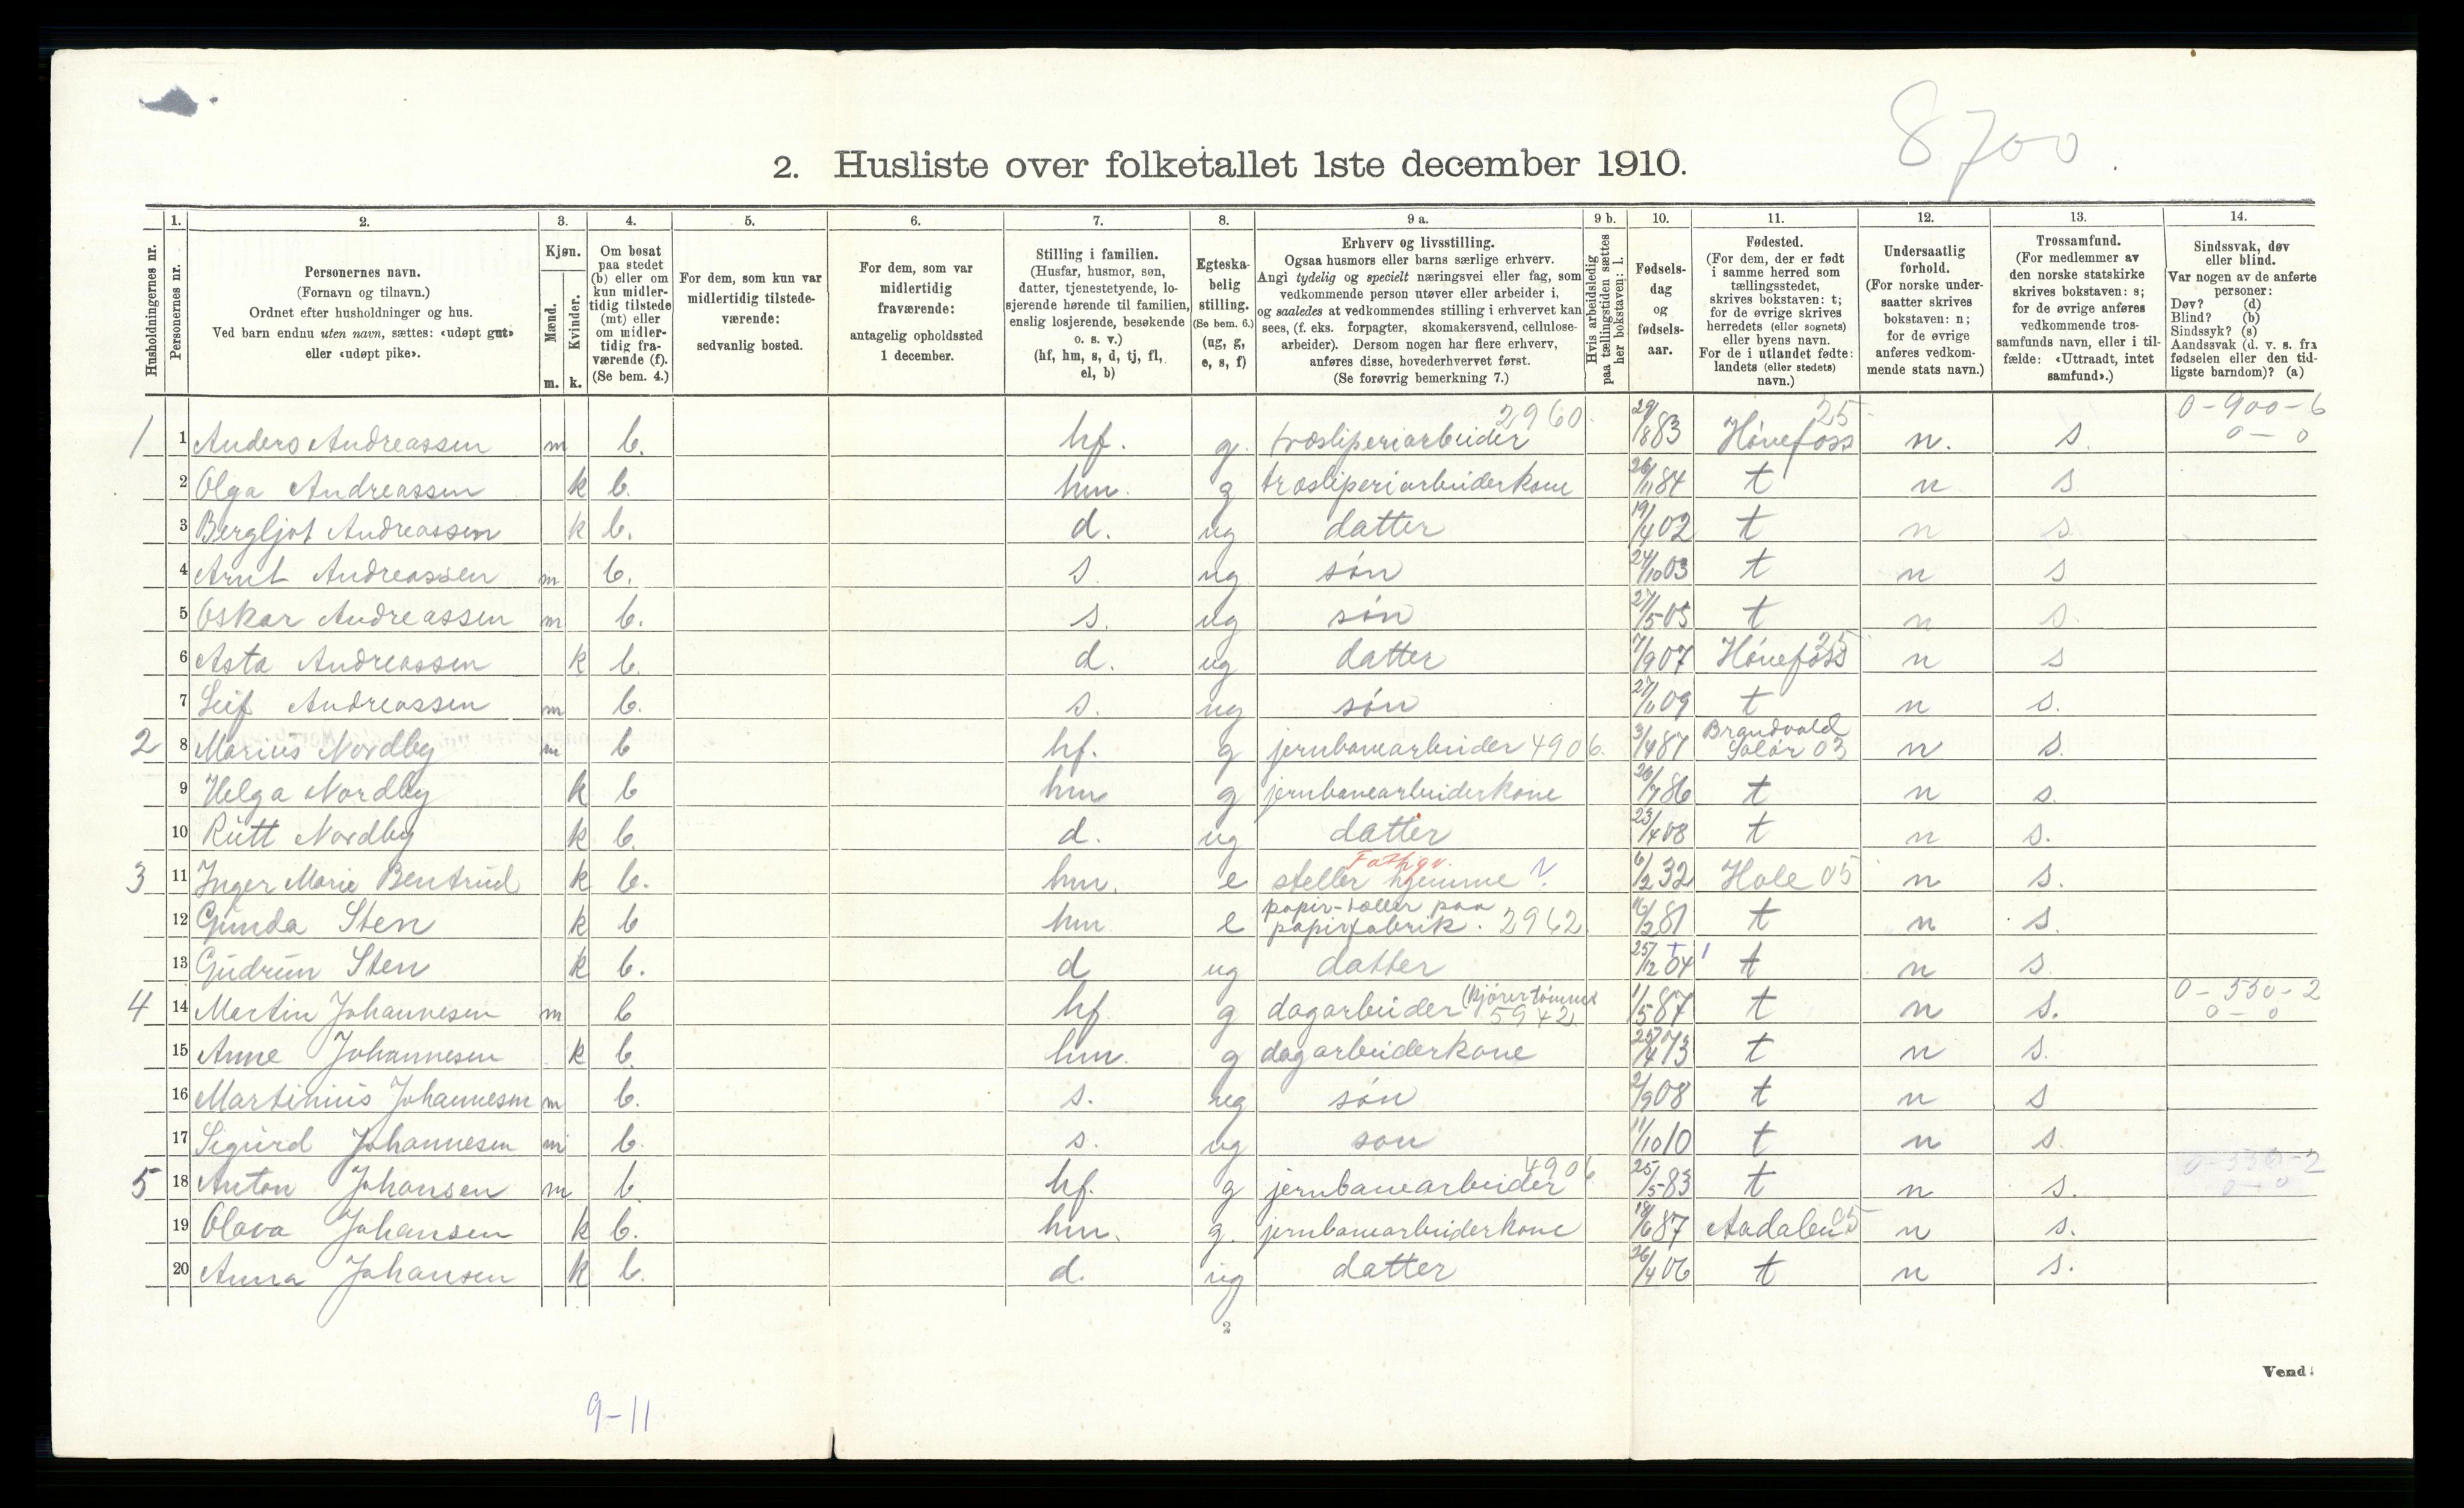 8700
2. Husliste over folketallet 1ste december 1910.
Husholdningernes nr.
1. Personernes nr.
2. Personernes navn.
(Fornavn og tilnavn.)
Ordnet efter husholdninger og hus.
Ved barn endnu uten navn, sættes: «udøpt gut»
eller «udøpt pike».
3. Kjøn.
Mænd. m.
Kvinder. k.
4. Om bosat
paa stedet
(b) eller om
kun midler-
tidig tilstede
(mt) eller
om midler-
tidig fra-
værende (f).
(Se bem. 4.)
5. For dem, som kun var
midlertidig tilstede-
værende:
sedvanlig bosted.
6. For dem, som var
midlertidig
fraværende:
antagelig opholdssted
1 december.
7. Stilling i familien.
(Husfar, husmor, søn,
datter, tjenestetyende, lo-
sjerende hørende til familien,
enslig losjerende, besøkende
o. s. v.)
(hf, hm, s, d, tj, fl,
el, b)
8. Egteska-
belig
stilling.
(Se bem. 6.)
(ug, g,
e, s, f)
9 a. Erhverv og livsstilling.
Ogsaa husmors eller barns særlige erhverv.
Angi tydelig og specielt næringsvei eller fag, som
vedkommende person utøver eller arbeider i,
og saaledes at vedkommendes stilling i erhvervet kan
sees, (f. eks. forpagter, skomakersvend, cellulose-
arbeider). Dersom nogen har flere erhverv,
anføres disse, hovederhvervet først.
(Se forøvrig bemerkning 7.)
9 b. Hvis arbeidsledig
paa tællingstiden sættes
her bokstaven: l.
10. Fødsels-
dag
og
fødsels-
aar.
11. Fødested.
(For dem, der er født
i samme herred som
tællingsstedet,
skrives bokstaven: t;
for de øvrige skrives
herredets (eller sognets)
eller byens navn.
For de i utlandet fødte:
landets (eller stedets)
navn.)
12. Undersaatlig
forhold.
(For norske under-
saatter skrives
bokstaven: n;
for de øvrige
anføres vedkom-
mende stats navn.)
13. Trossamfund.
(For medlemmer av
den norske statskirke
skrives bokstaven: s;
for de øvrige anføres
vedkommende tros-
samfunds navn, eller i til-
fælde: «Uttraadt, intet
samfund».)
14. Sindssvak, døv
eller blind.
Var nogen av de anførte
personer:
Døv? (d)
Blind? (b)
Sindssyk? (s)
Aandssvak (d. v. s. fra
fødselen eller den tid-
ligste barndom)? (a)
1 1 Anders Andreassen m b. hf. g. træsliperiarbeider 2960. 29/8 83 Hønefoss 25 n. s. 0-900-6 0-0
2 Olga Andreassen k b. hm. g træsliperiarbeiderkone 26/11 84 t n s
3 Bergljot Andreassen k b. d. ug datter 19/4 02 t n s
4 Arnt Andreassen m b. s. ug søn 24/10 03 t n s
5 Oskar Andreassen m b. s. ug søn 27/5 05 t n s.
6 Asta Andreassen k b. d. ug datter 7/9 07 Hønefoss 25 n s
7 Leif Andreassen m b. s. ug søn 09 t n s.
2 8 Marius Nordby m b hf. g jernbanearbeider 4906. 3/4 87 Brandvold Solør 03 n s.
9 Helga Nordby k b hm g jernbanearbeiderkone 26/7 86 t n s.
10 Rutt Nordby k b. d. ug datter 23/4 08 t n s.
3 11 Inger Marie Bentrud k b. hm. e steller hjemme Fattigv. 6/2 32 Hole 05 n s.
12 Gunda Sten k b hm e papir-tæller paa papirfabrik. 2962 16/2 81 t n s.
13 Gudrun Sten k b. d ug datter 25/12 04 t n s
4 14 Martin Johannesen m b hf g dagarbeider (kjører tømmer 5942 1/5 87 t n s. 0-550-2 0-0
15 Anne Johannesen k b. hm. g dagarbeiderkone 25/4 73 t n s.
16 Martinius Johannesen m b. s. ug søn 2/9 08 t n s
17 Sigurd Johannesen m b. s. ug søn 11/10 10 t n s.
5 18 Anton Johansen m b. hf. g jernbanearbeider 4906 25/5 83 t n s. 0-330-2 0-0
19 Olava Johansen k b. hm. g. jernbanearbeiderkone 18/6 87 Aadalen 05 n s.
20 Anna Johansen k b. d. ug datter 26/4 06 t n s.
2
Vend.
9-11